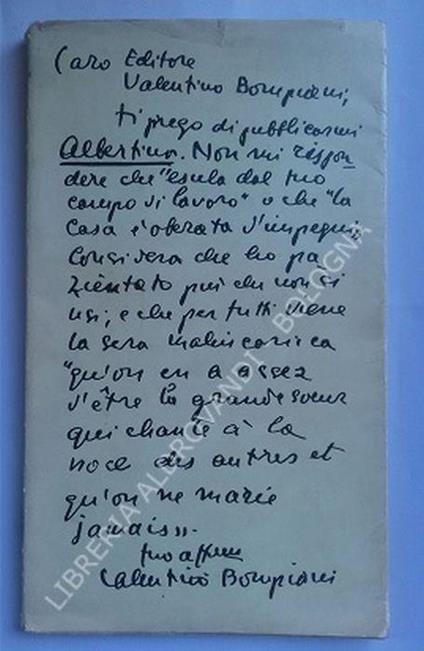 Caro Editore
Valentino Bompiani,
ti prego di pubblicarmi
Albertina. Non mi rispon
dere che "esula dal tuo
campo di lavoro" o che "la
casa è oberata d'impegni".
Considera che ho pa
zientato più che non si
usi; e che per tutti viene
la sera malinconica
"qu'on en a assez
d'être la grande soeur
qui chante à la
noce des autres et
qu'on ne marie
jamais".
tuo affmo
Valentino Bompiani
LIBRERIA ALDROVANDI - BOLOGNA